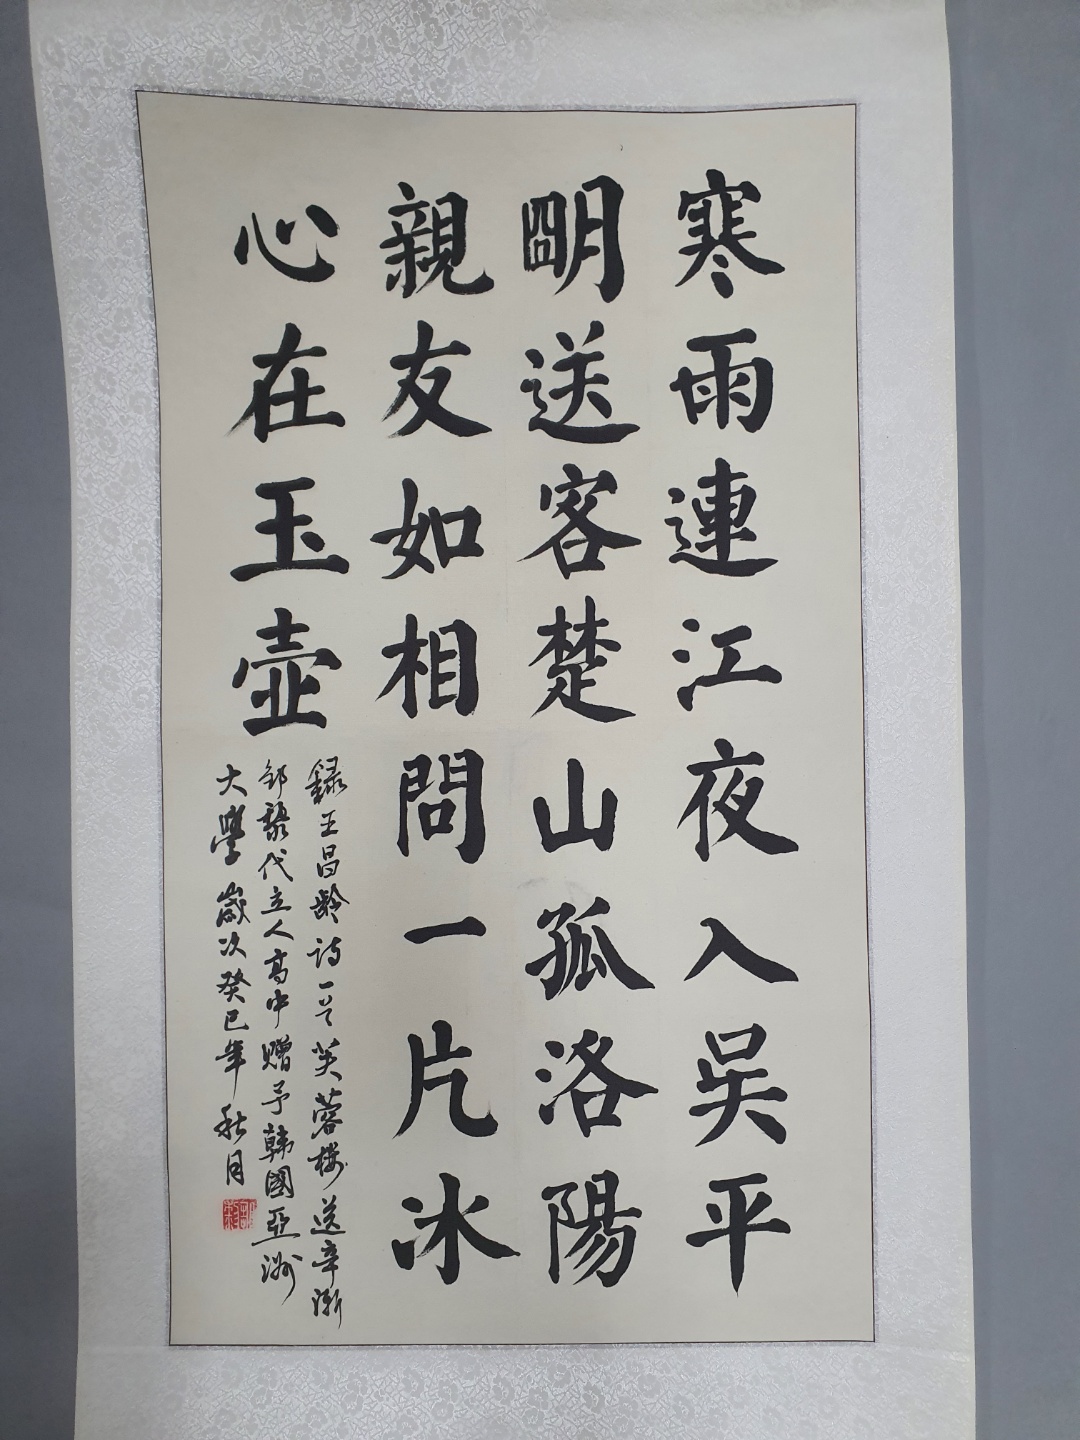 寒雨連江夜入吳平
朙送客楚山孤洛陽
親友如相問一片冰
心在玉壺
録王昌齡詩一首芙蓉樓送辛漸
邹聚代立人高中赠予韩國亞洲
大學歲次癸巳年秋月